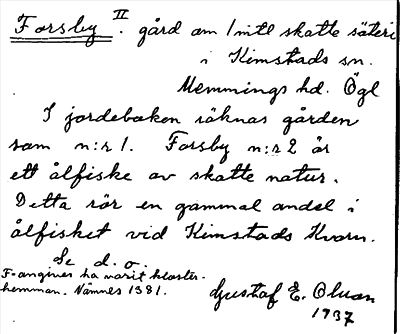 Forsby II. gård om 1 mtl skatte säteri
i Kimstads sn.
Memmings hd. Ögl
I jordeboken räknas gården
som n:r 1. Forsby n:r 2 är
ett ålfiske av skatte natur.
Detta rör en gammal andel i
ålfisket vid Kimstads Kvarn.
Se d. o.
F. angives ha varit kloster-
hemman. Nämnes 1381.
Gustaf E. Olsson
1937